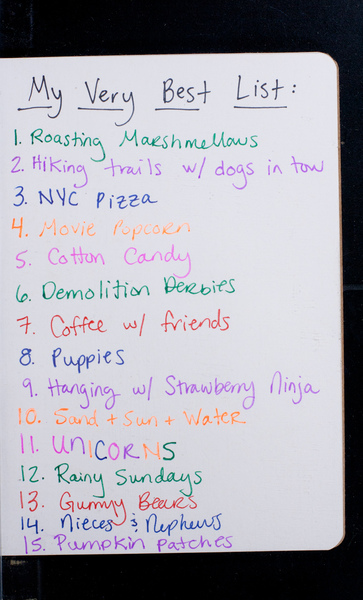 My Very Best List:
1. Roasting Marshmellows
2. Hiking trails w/ dogs in tow
3. NYC Pizza
4. Movie Popcorn
5. Cotton Candy
6. Demolition Derbies
7. Coffee w/ friends
8. Puppies
9. Hanging w/ Strawberry Ninja
10. Sand + Sun + Water
11. UNICORNS
12. Rainy Sundays
13. Gummy Bears
14. Nieces & Nephews
15. Pumpkin patches